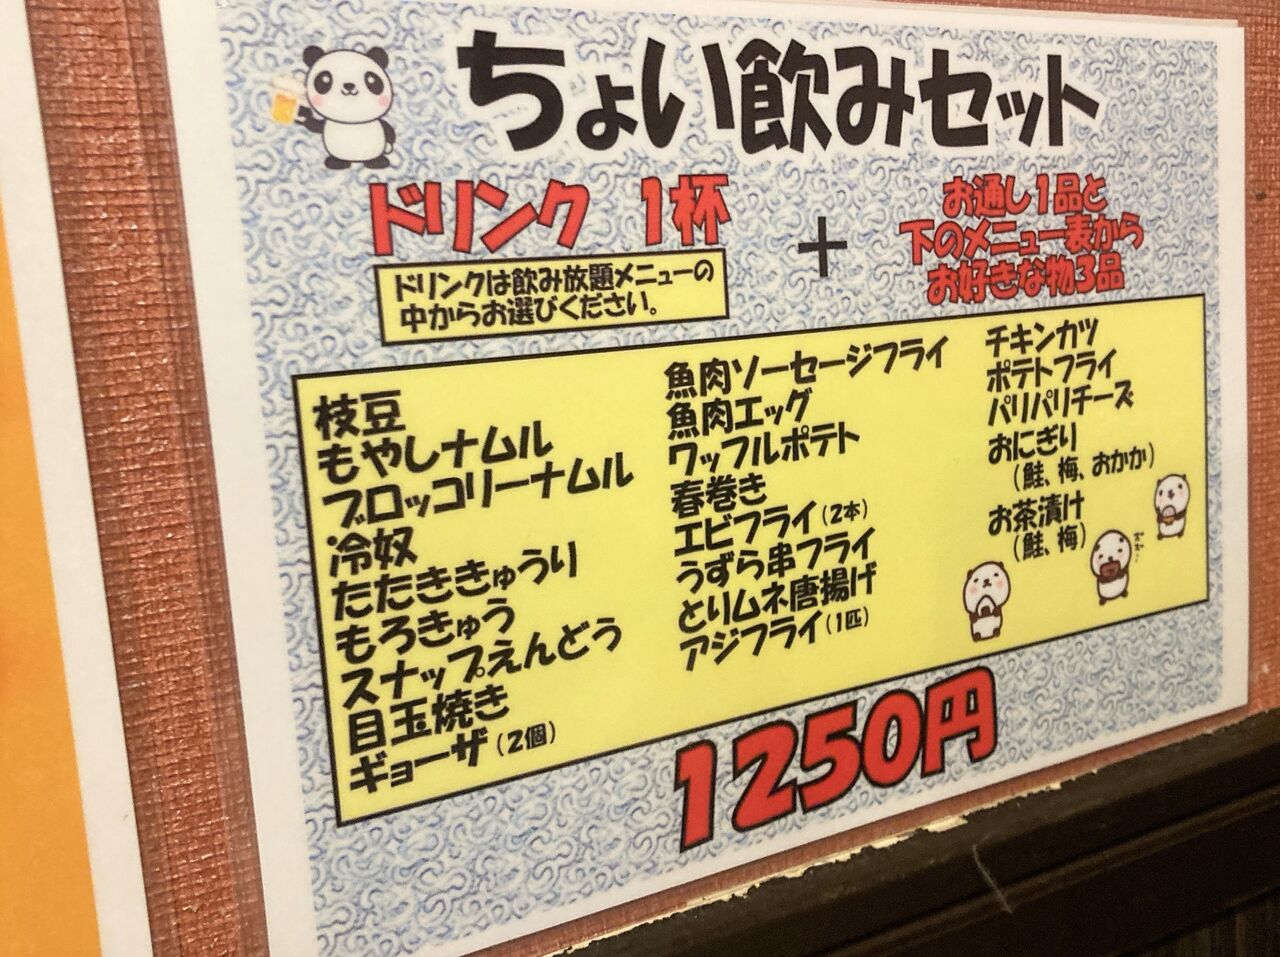 ちょい飲みセット
ドリンク 1杯
ドリンクは飲み放題メニューの
中からお選びください。
+
お通し1品と
下のメニュー表から
お好きな物3品
枝豆
もやしナムル
ブロッコリーナムル
冷奴
たたききゅうり
もろきゅう
スナップえんどう
目玉焼き
ギョーザ(2個)
魚肉ソーセージフライ
魚肉エッグ
ワッフルポテト
春巻き
エビフライ(2本)
うずら串フライ
とりムネ唐揚げ
アジフライ(1匹)
チキンカツ
ポテトフライ
パリパリチーズ
おにぎり
(鮭、梅、おかか)
お茶漬け
(鮭、梅)
1250円